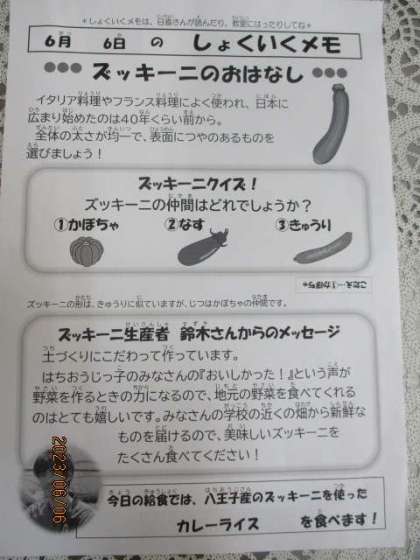 ＊しょくいくメモは、日直さんが読んだり、教室にはったりしてね＊
6月 6日 の しょくいくメモ
●●●ズッキーニのおはなし●●●
イタリア料理やフランス料理によく使われ、日本に
広まり始めたのは40年くらい前から。
全体の太さが均一で、表面につやのあるものを
選びましょう！
ズッキーニクイズ！
ズッキーニの仲間はどれでしょうか？
①かぼちゃ ②なす ③きゅうり
こたえ…①かぼちゃ
ズッキーニの形は、きゅうりに似ていますが、じつはかぼちゃの仲間です。
ズッキーニ生産者 鈴木さんからのメッセージ
土づくりにこだわって作っています。
はちおうじっ子のみなさんの『おいしかった！』という声が
野菜を作るときの力になるので、地元の野菜を食べてくれる
のはとても嬉しいです。みなさんの学校の近くの畑から新鮮な
ものを届けるので、美味しいズッキーニを
たくさん食べてください！
今日の給食では、八王子産のズッキーニを使った
カレーライス を食べます！
2023/06/06